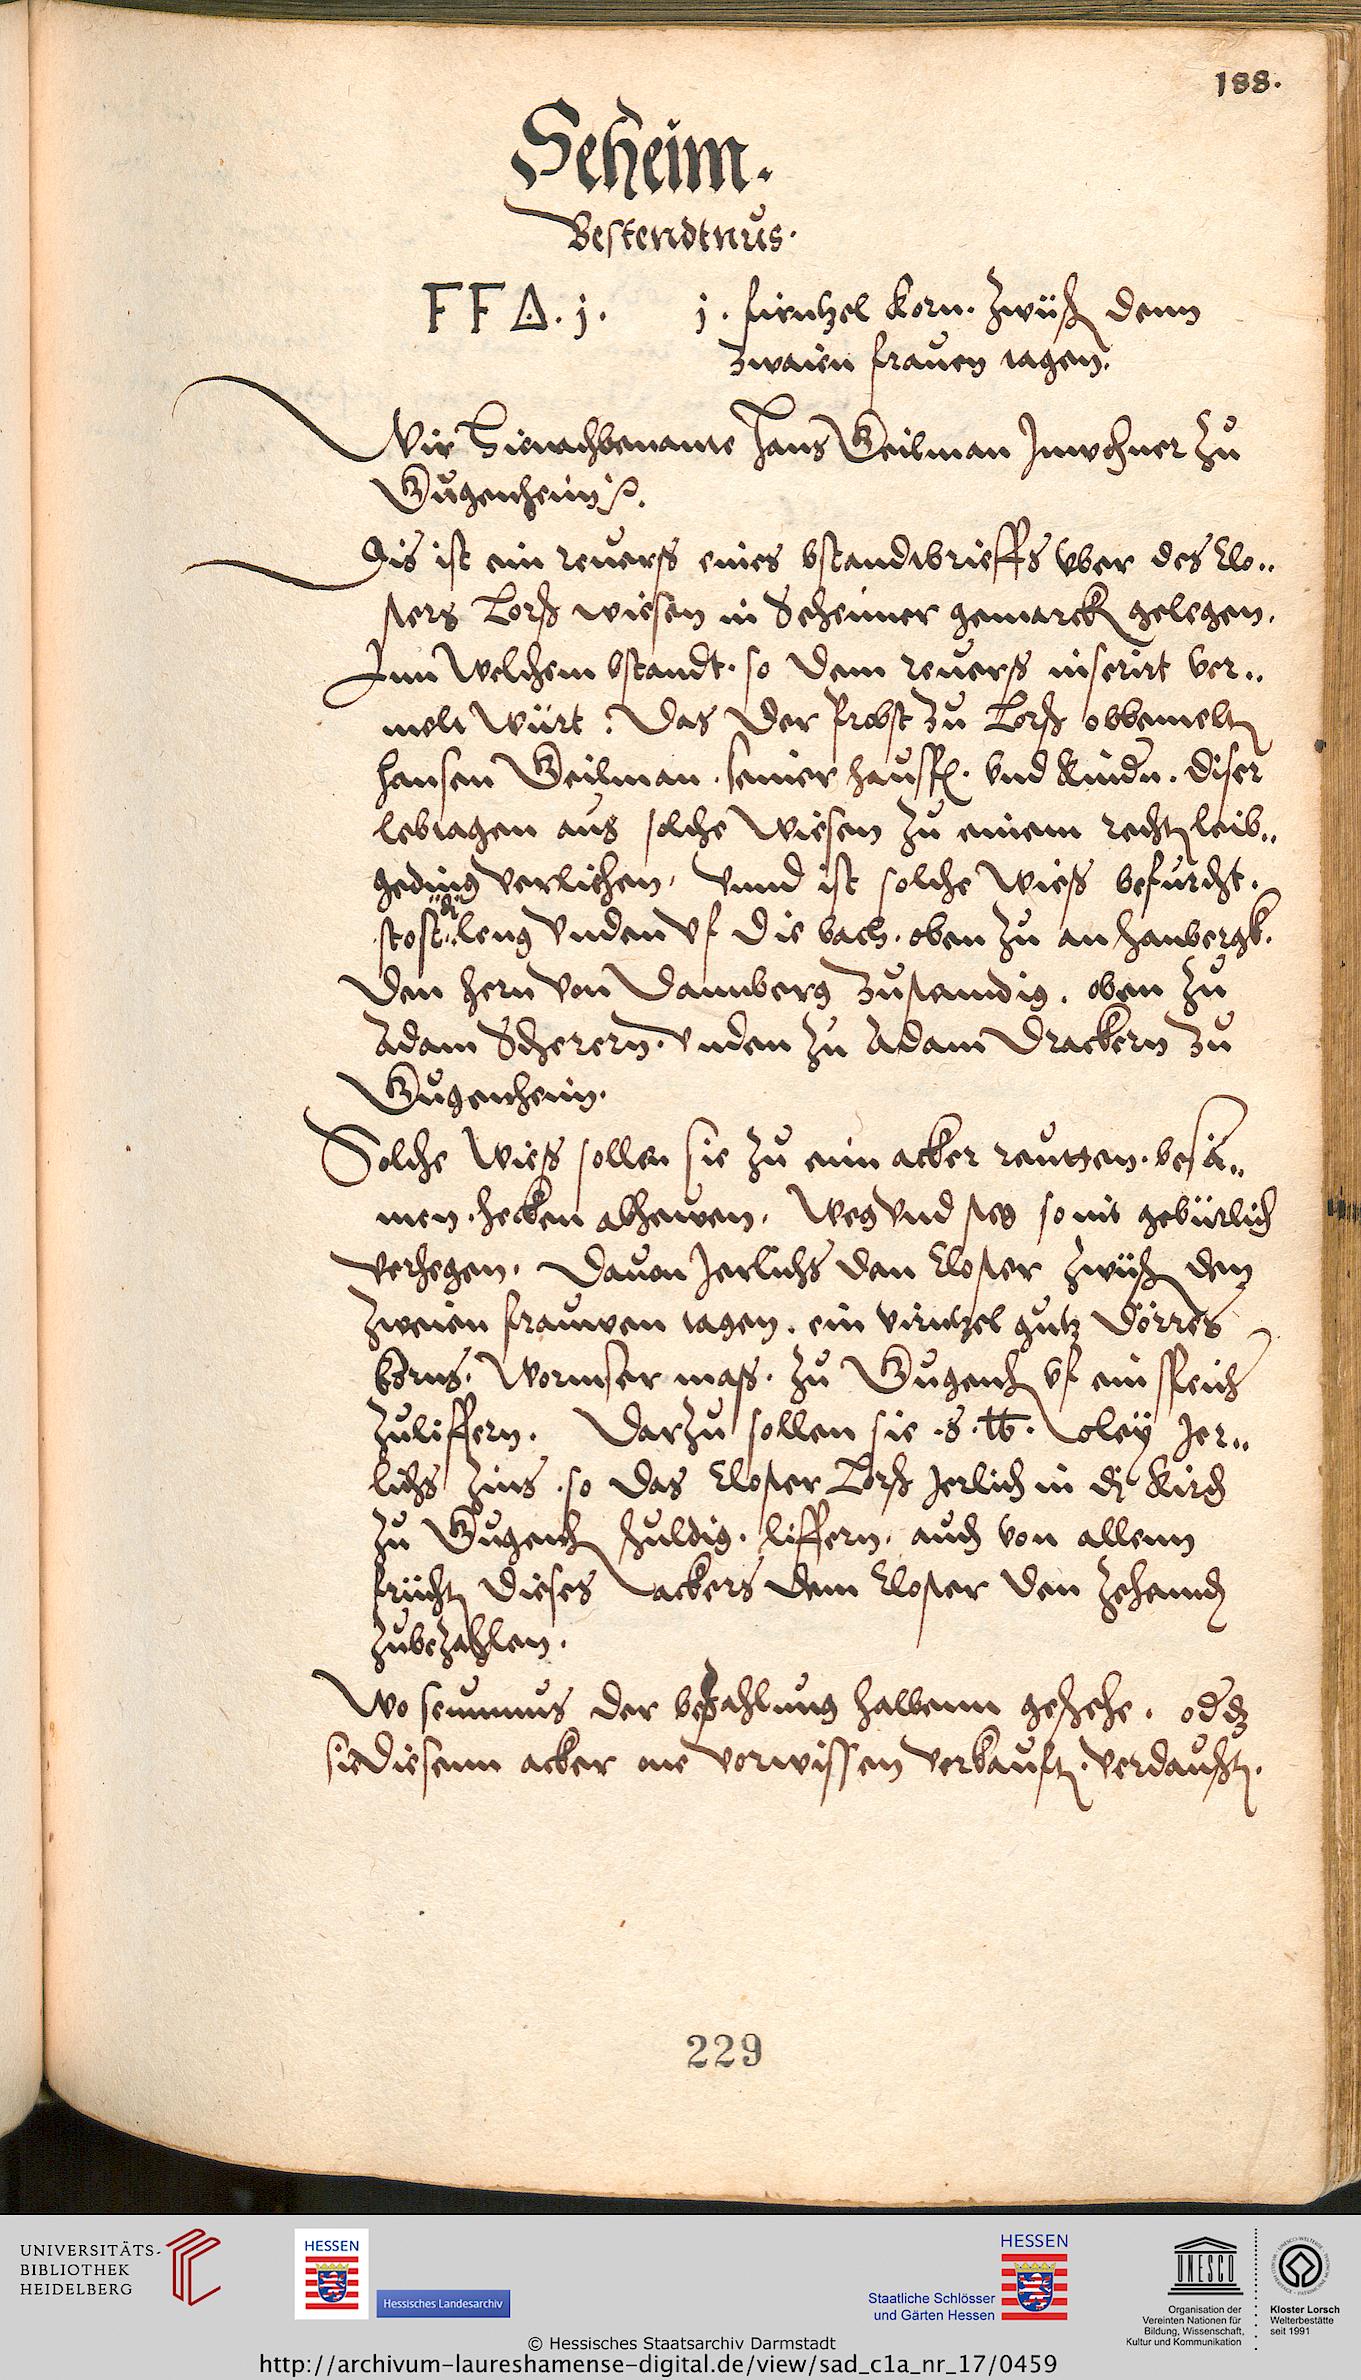 188.
Seheim.
Bestendtnus.
F F Δ. j. j. firntzel korn. zwüsch denn
zwaien frauen tagen.
Wir Hienachbenante Hans Geilman Inwohner zu
Gugenheim
Dis ist ein reuerß eines bstandtbrieffs vber des Clo..
sters Lorß wiesen in Seheimer gemarck gelegen.
Inn Welchem bstandt. so dem reuerß inserirt ver..
melt Würt: Das der Probst zu Lorß obbemelt
hansen Geilman. seiner haußf. vnd Kindn. diser
lebtagen aus solche Wiesen zu einem recht leib..
geding verlichen, Vnnd ist solche Wieß befurcht.
stost.. der leng Vnden Vf die bach. oben zu an
den hern von Dannberg Zustendig. oben zu
Adam Scherern. Vnden zu Adam Drackern zu
Gugenheim.
Solche Wieß sollen sie zu eim acker reutten. besä..
men. hecken abhewen, Weg Vnd steg so mit gebürlich
verhegen. Dauon Jerlichs den Closter zwüsch den
zweien frauwen tagen. ein virntzel gutz dörres
korns. Wormser maß. zu Gugenh vf ein speich
zuliffern. Darzu sollen sie .s. ℔. oley Jer..
lichs zins. so das Closter Lorß Jerlich in die Kirch
zu Gugenh schuldig. liffern. auch von allenn
frücht dieses ackers dem Closter den Zehend
zubezahlen.
Wo seumnus der bezahlung halbenn geschehe. oder
sie diesenn acker one Vorwissen Verkauft. Verdauscht.
229
UNIVERSITÄTS-
BIBLIOTHEK
HEIDELBERG
HESSEN
Hessisches Landesarchiv
HESSEN
Staatliche Schlösser
und Gärten Hessen
UNESCO
Organisation der
Vereinten Nationen für
Bildung, Wissenschaft,
Kultur und Kommunikation
Kloster Lorsch
Welterbestätte
seit 1991
© Hessisches Staatsarchiv Darmstadt
http://archivum-laureshamense-digital.de/view/sad_c1a_nr_17/0459